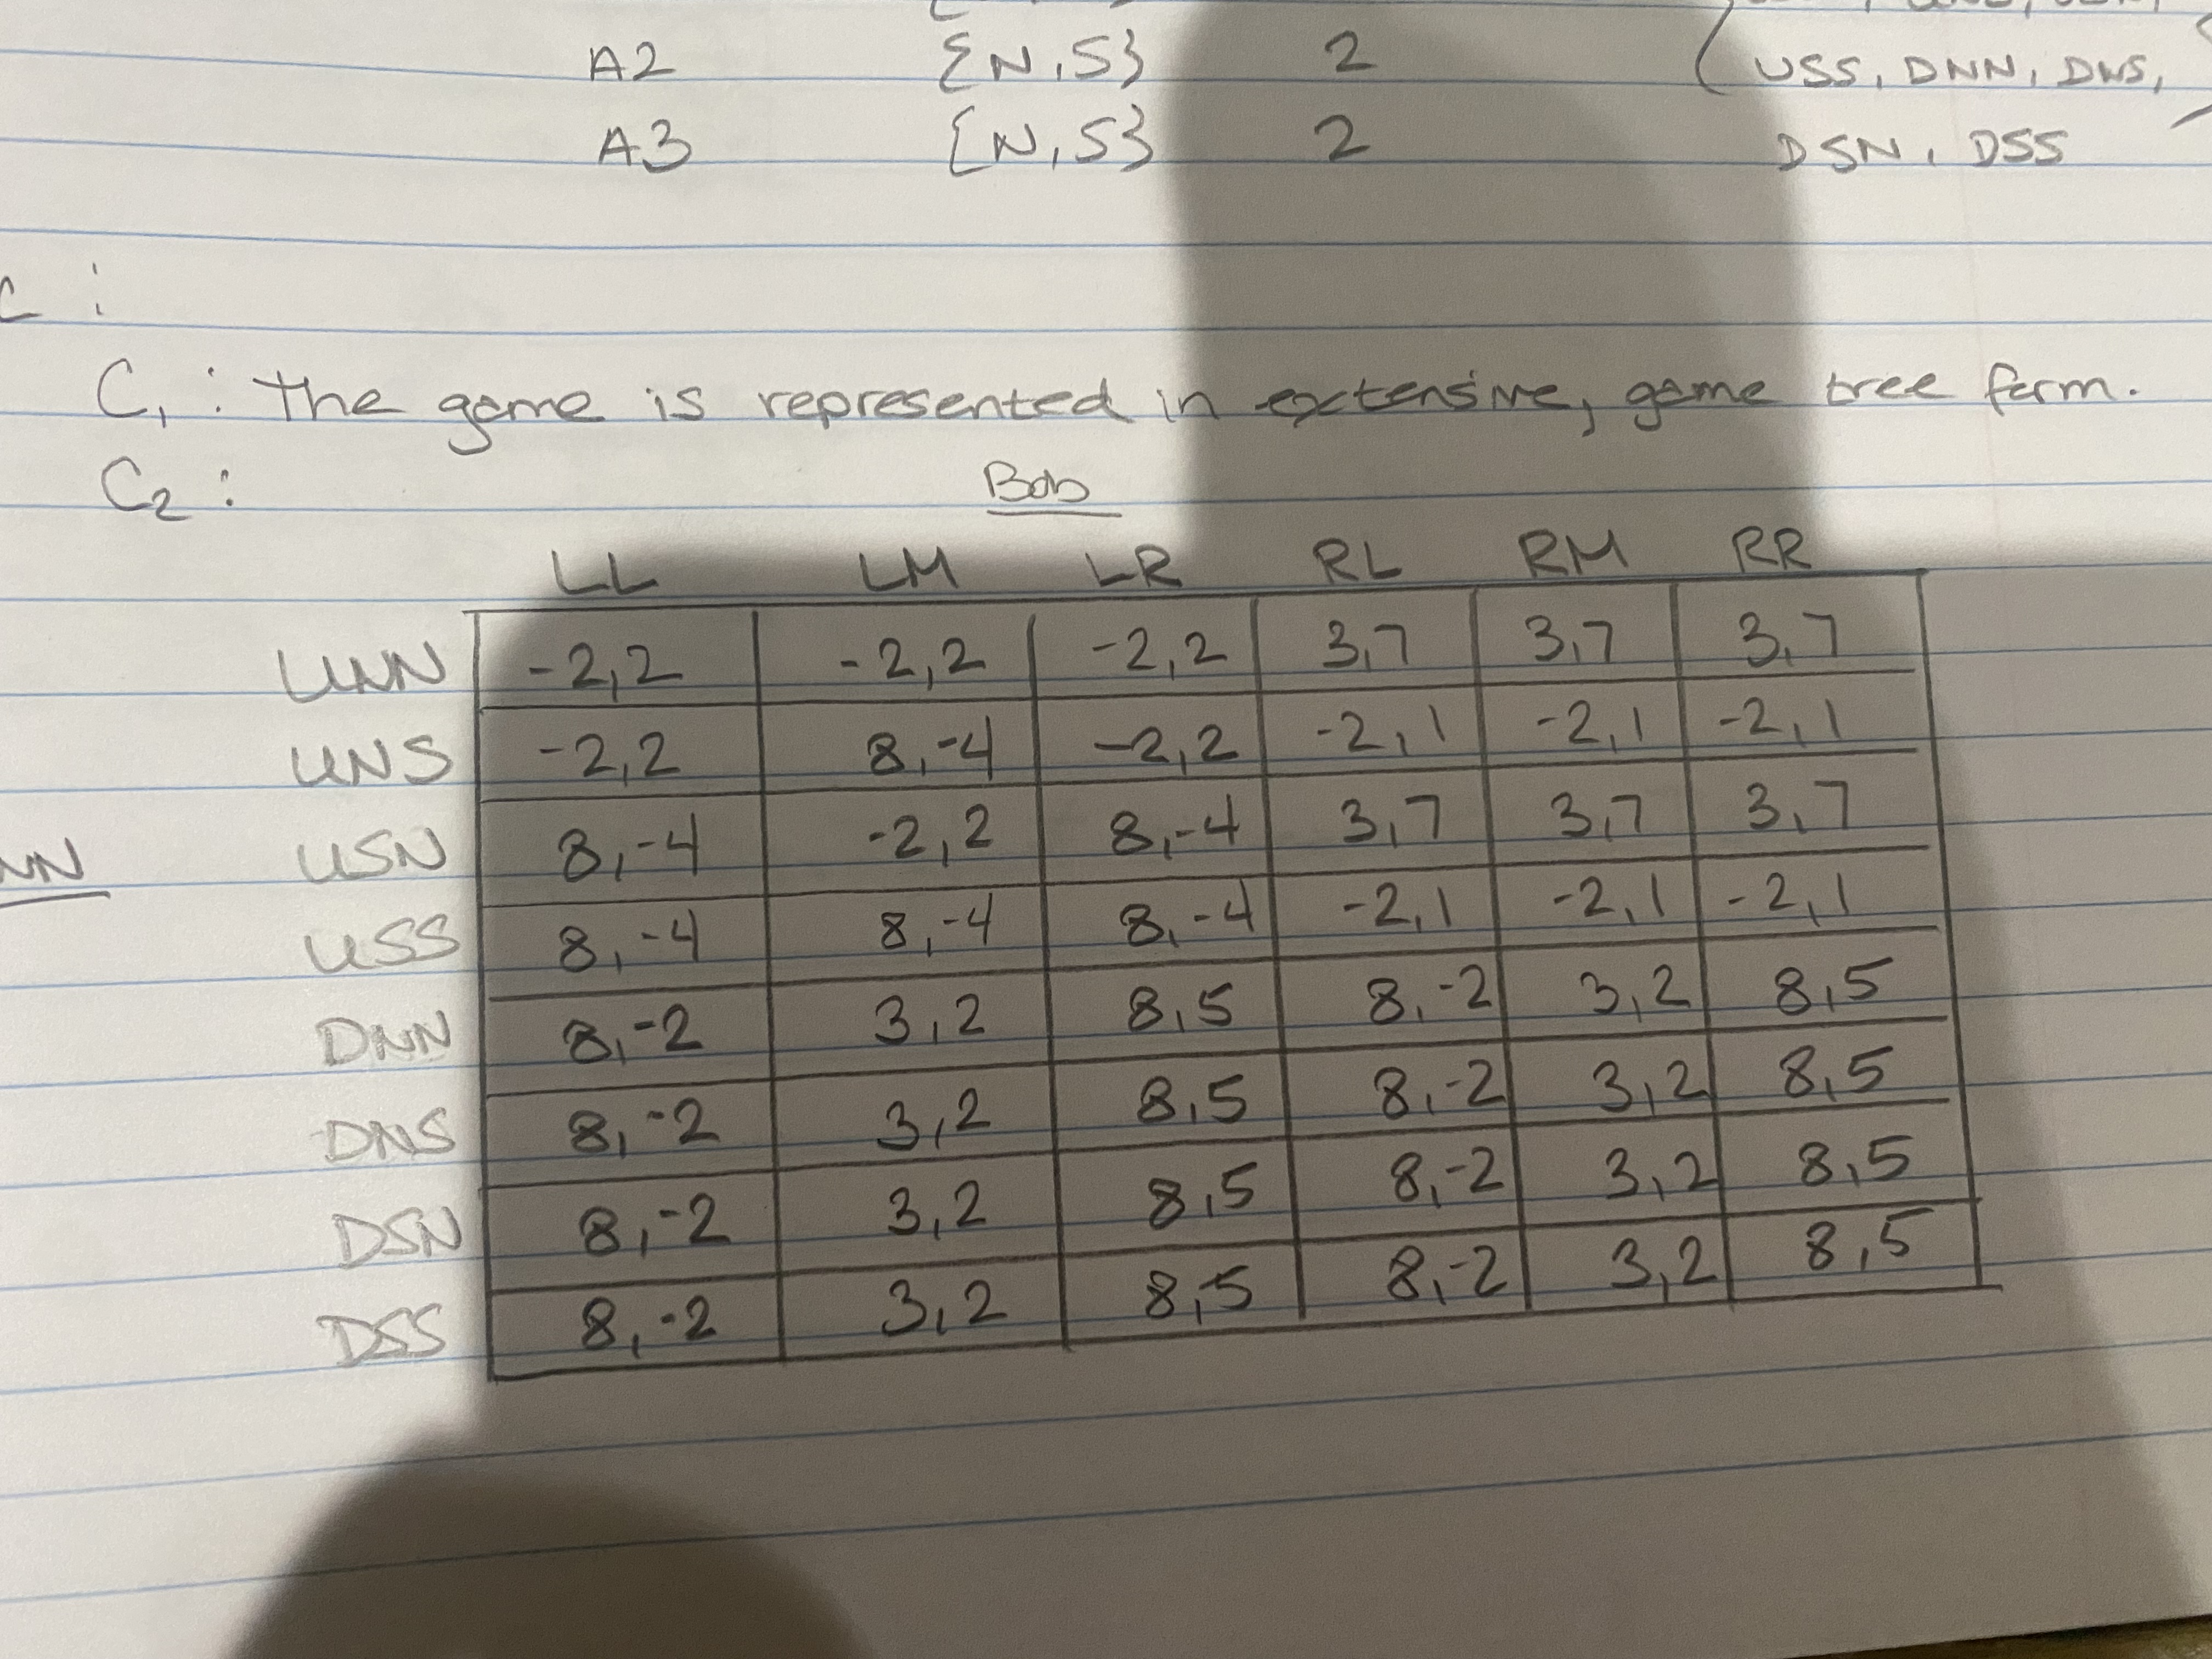 A2 {N,S} 2 USS, DNN, DNS,
A3 {N,S} 2 DSN, DSS
C :
C1 : The game is represented in extensive, game tree form.
C2 : Bob
LL LM LR RL RM RR
UNN -2,2 -2,2 -2,2 3,7 3,7 3,7
UNS -2,2 8,-4 -2,2 -2,1 -2,1 -2,1
NN USN 8,-4 -2,2 8,-4 3,7 3,7 3,7
USS 8,-4 8,-4 8,-4 -2,1 -2,1 -2,1
DNN 8,-2 3,2 8,5 8,-2 3,2 8,5
DNS 8,-2 3,2 8,5 8,-2 3,2 8,5
DSN 8,-2 3,2 8,5 8,-2 3,2 8,5
DSS 8,-2 3,2 8,5 8,-2 3,2 8,5